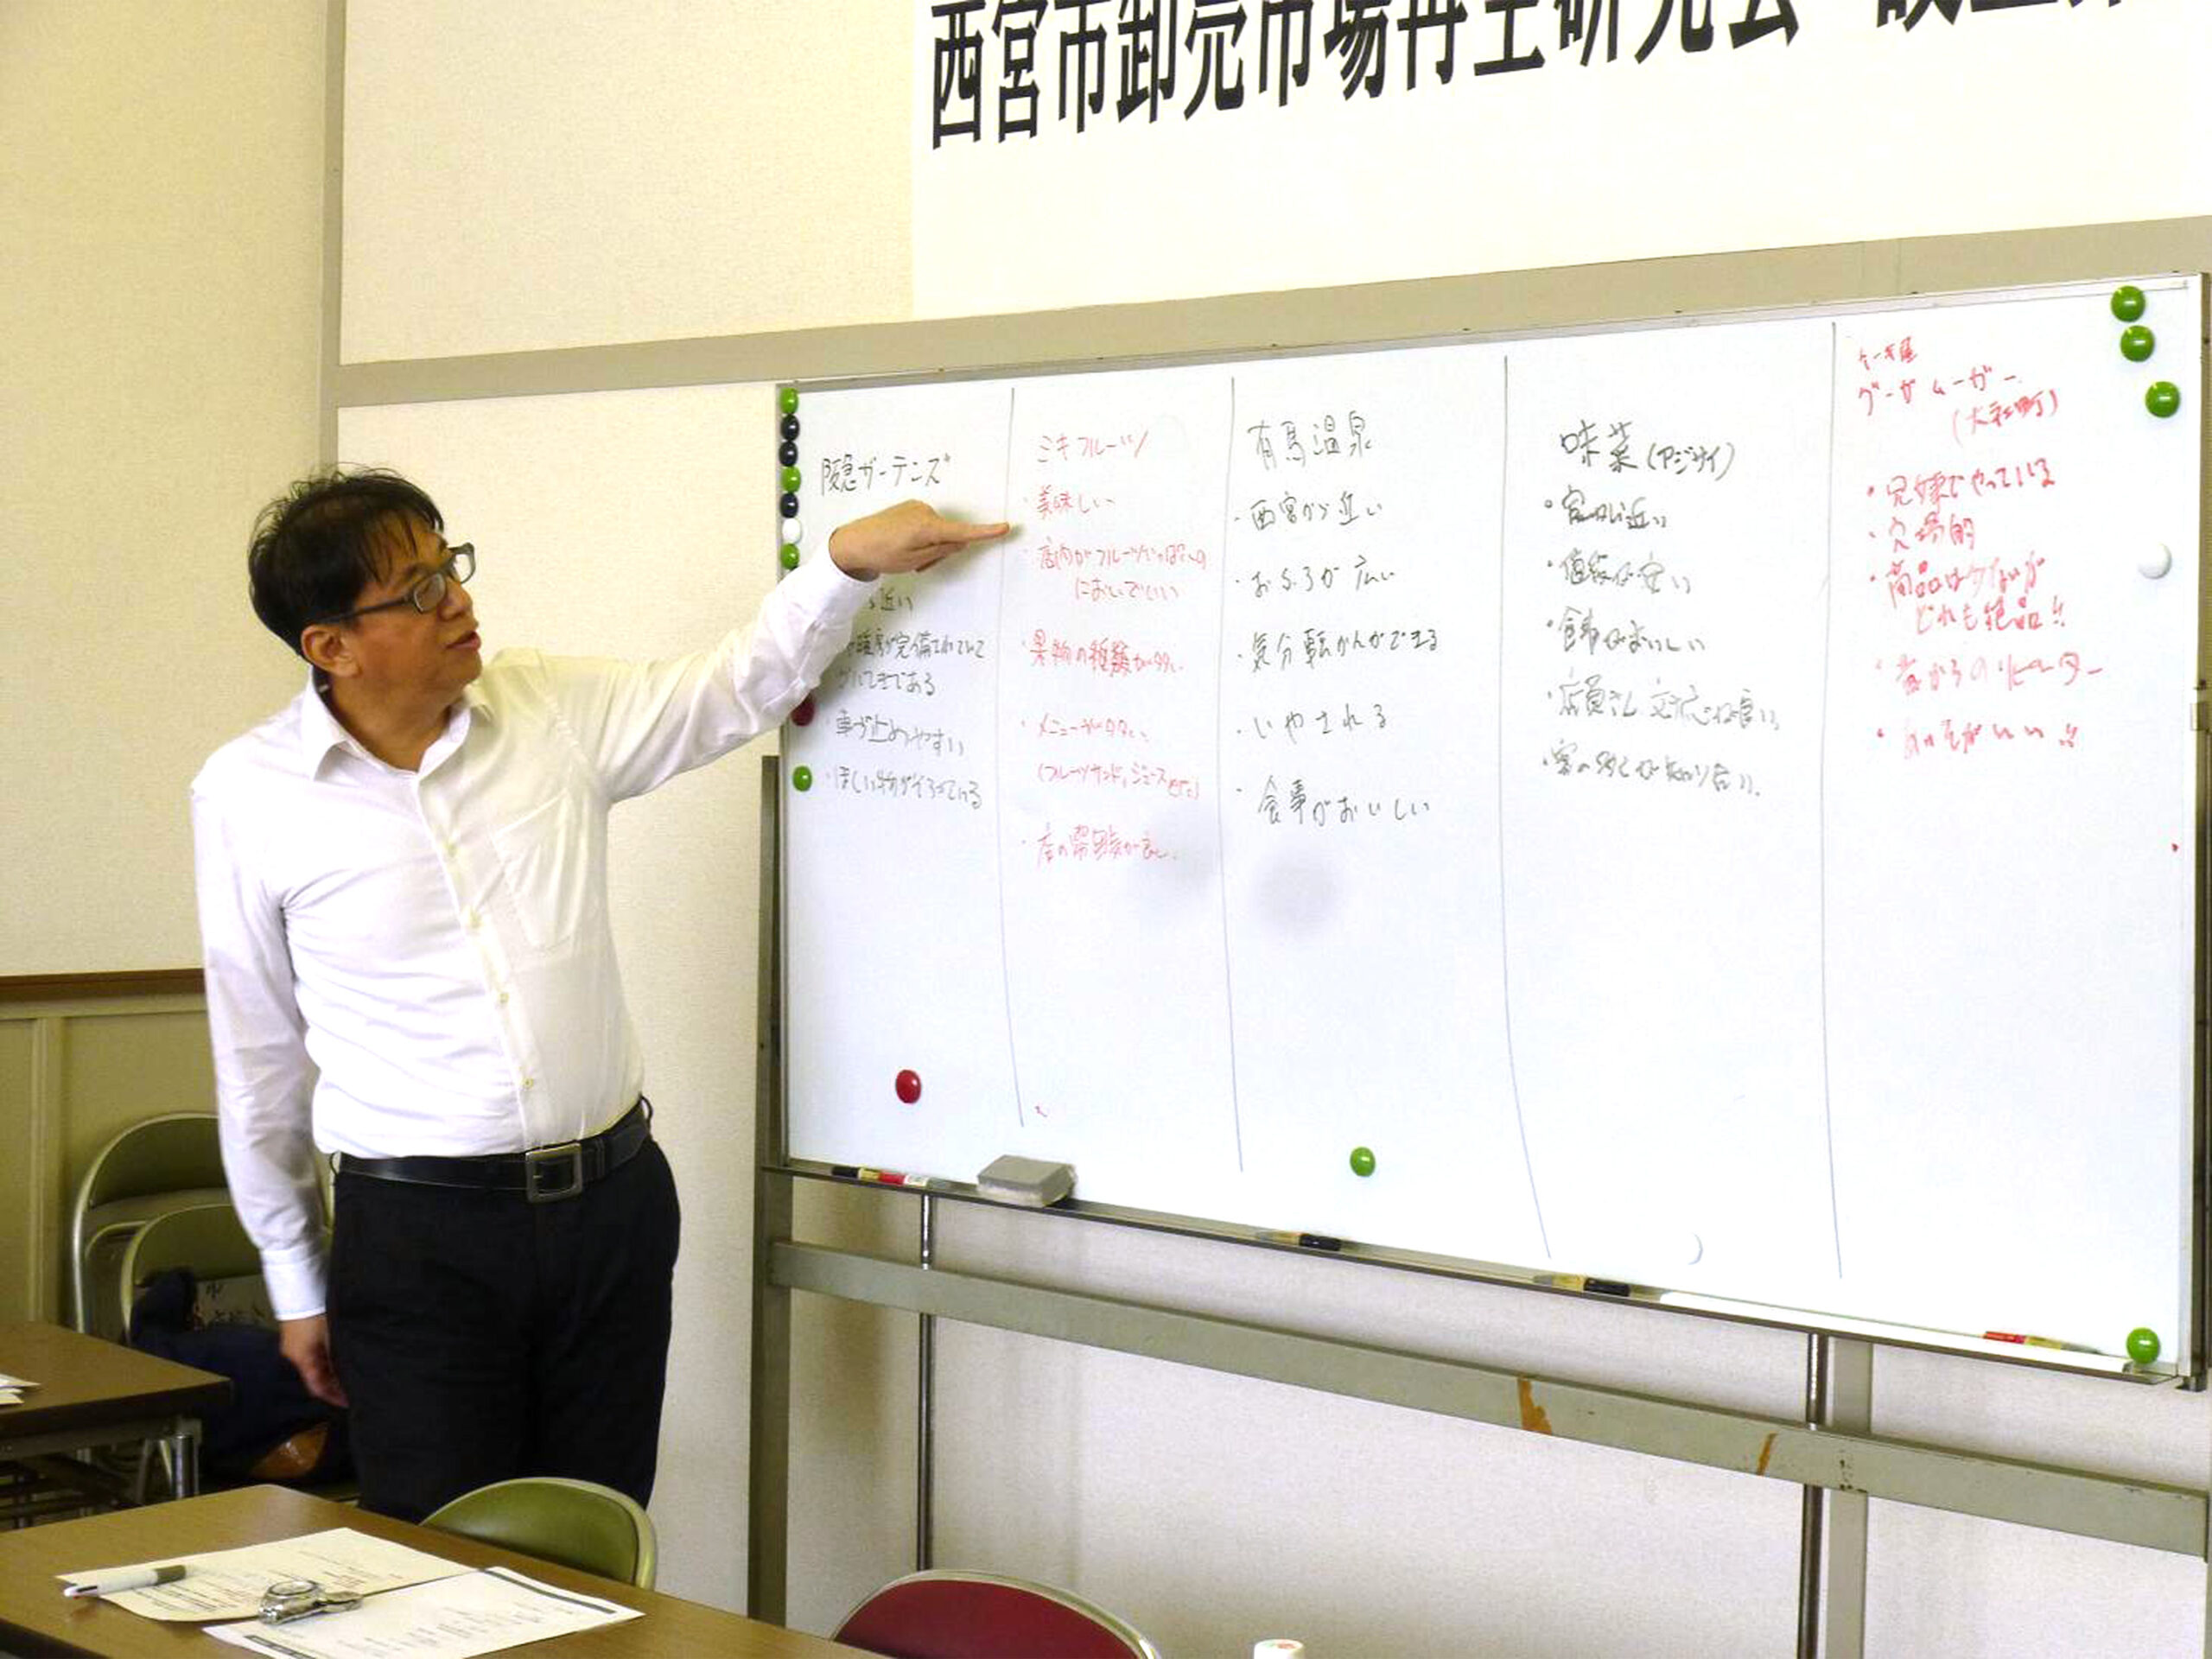 西宮市卸売市場再生研究会
阪急ガーデンズ
近い
車が止めやすい
・ほしい物がそろっている
ミキフルーツ
・美味しい
・店内がフルーツでいっぱいの
においでいい
・果物の種類が多い
・メニューが多い
(フルーツサンド、ジュースetc)
・店の雰囲気が良い
有馬温泉
・西宮から近い
・おふろが広い
・気分転かんができる
・いやされる
・食事がおいしい
味菜(アジサイ)
・家から近い
・値段が安い
・食事がおいしい
・店員さん 交流が良い
ケーキ屋
グーザムーガー
(大社町)
・兄嫁でやっている
・穴場的
・商品は少ないが
どれも絶品!!
・昔からのリピーター